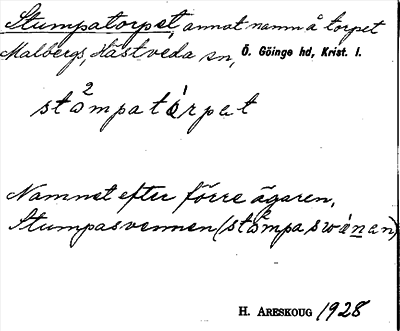 Stumpatorpet, annat namn å torpet
Malbergs, Hästveda sn, Ö. Göinge hd, Krist. l.
stå2mpatǻrpat
Namnet efter förre ägaren,
Stumpasvennen (stå2mpaswä́nan)
H. ARESKOUG 1928